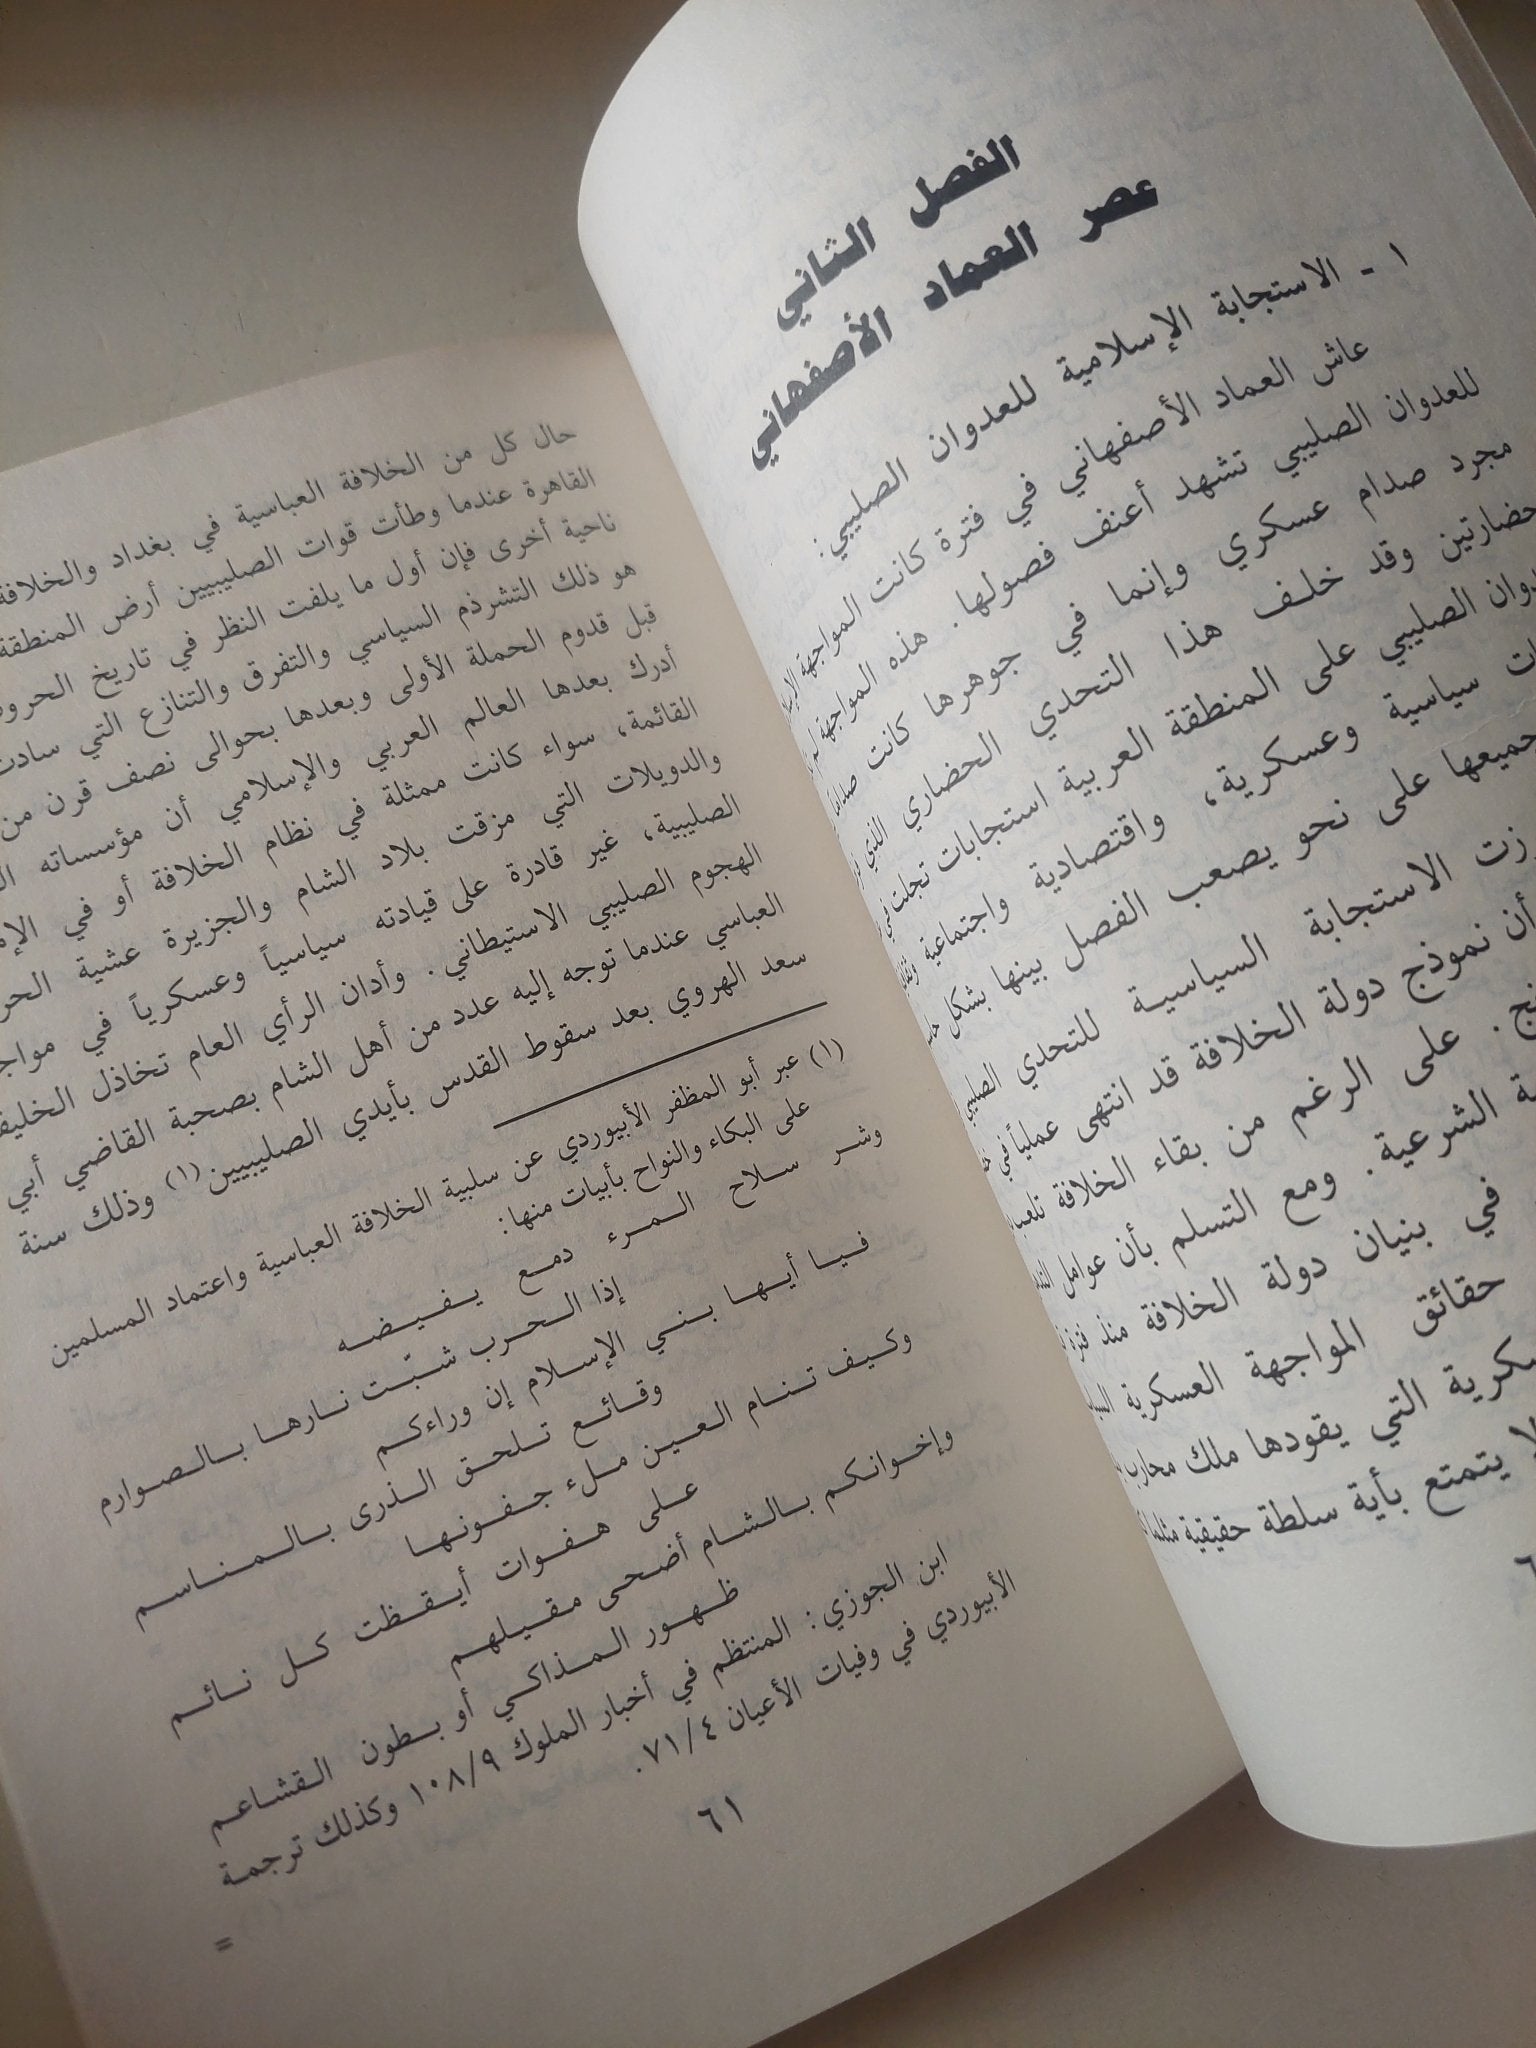 الفصل الثاني
عصر العماد الأصفهاني
١ - الاستجابة الإسلامية للعدوان الصليبي:
عاش العماد الأصفهاني في فترة كانت المواجهة
للعدوان الصليبي تشهد أعنف فصولها. هذه المواجهة لم
مجرد صدام عسكري وإنما في جوهرها كانت
حضارتين وقد خلف هذا التحدي الحضاري الذي
الصليبي على المنطقة العربية استجابات تجلت في
سياسية وعسكرية، واقتصادية واجتماعية
جميعها على نحو يصعب الفصل بينها بشكل
الاستجابة السياسية للتحدي
أن نموذج دولة الخلافة قد انتهى عملياً في
على الرغم من بقاء الخلافة
الشرعية. ومع التسلم بأن عوامل
في بنيان دولة الخلافة منذ فترة
حقائق المواجهة العسكرية
التي يقودها ملك محارب
يتمتع بأية سلطة حقيقية
حال كل من الخلافة العباسية في بغداد والخلافة
القاهرة عندما وطأت قوات الصليبيين أرض المنطقة
ناحية أخرى فإن أول ما يلفت النظر في تاريخ
هو ذلك التشرذم السياسي والتفرق والتنازع التي سادت
قبل قدوم الحملة الأولى وبعدها بحوالى نصف قرن من
أدرك بعدها العالم العربي والإسلامي أن مؤسساته
القائمة، سواء كانت ممثلة في نظام الخلافة أو في
والدويلات التي مزقت بلاد الشام والجزيرة عشية
الصليبية، غير قادرة على قيادته سياسياً وعسكرياً في
الهجوم الصليبي الاستيطاني. وأدان الرأي العام تخاذل
العباسي عندما توجه إليه عدد من أهل الشام بصحبة القاضي أبي
سعد الهروي بعد سقوط القدس بأيدي الصليبيين(١) وذلك سنة
(١) عبر أبو المظفر الأبيوردي عن سلبية الخلافة العباسية واعتماد المسلمين
على البكاء والنواح بأبيات منها:
وشر سلاح المرء دمع يفيضه
إذا الحرب شبّت نارها بالصوارم
فيا أيها بني الإسلام إن وراءكم
وقائع تلحق الذرى بالمناسم
وكيف تنام العين ملء جفونها
على هفوات أيقظت كل نائم
وإخوانكم بالشام أضحى مقيلهم
ظهور المذاكي أو بطون القشاعم
ابن الجوزي: المنتظم في أخبار الملوك ١٠٨/٩ وكذلك ترجمة
الأبيوردي في وفيات الأعيان ٧١/٤.
=
٦١